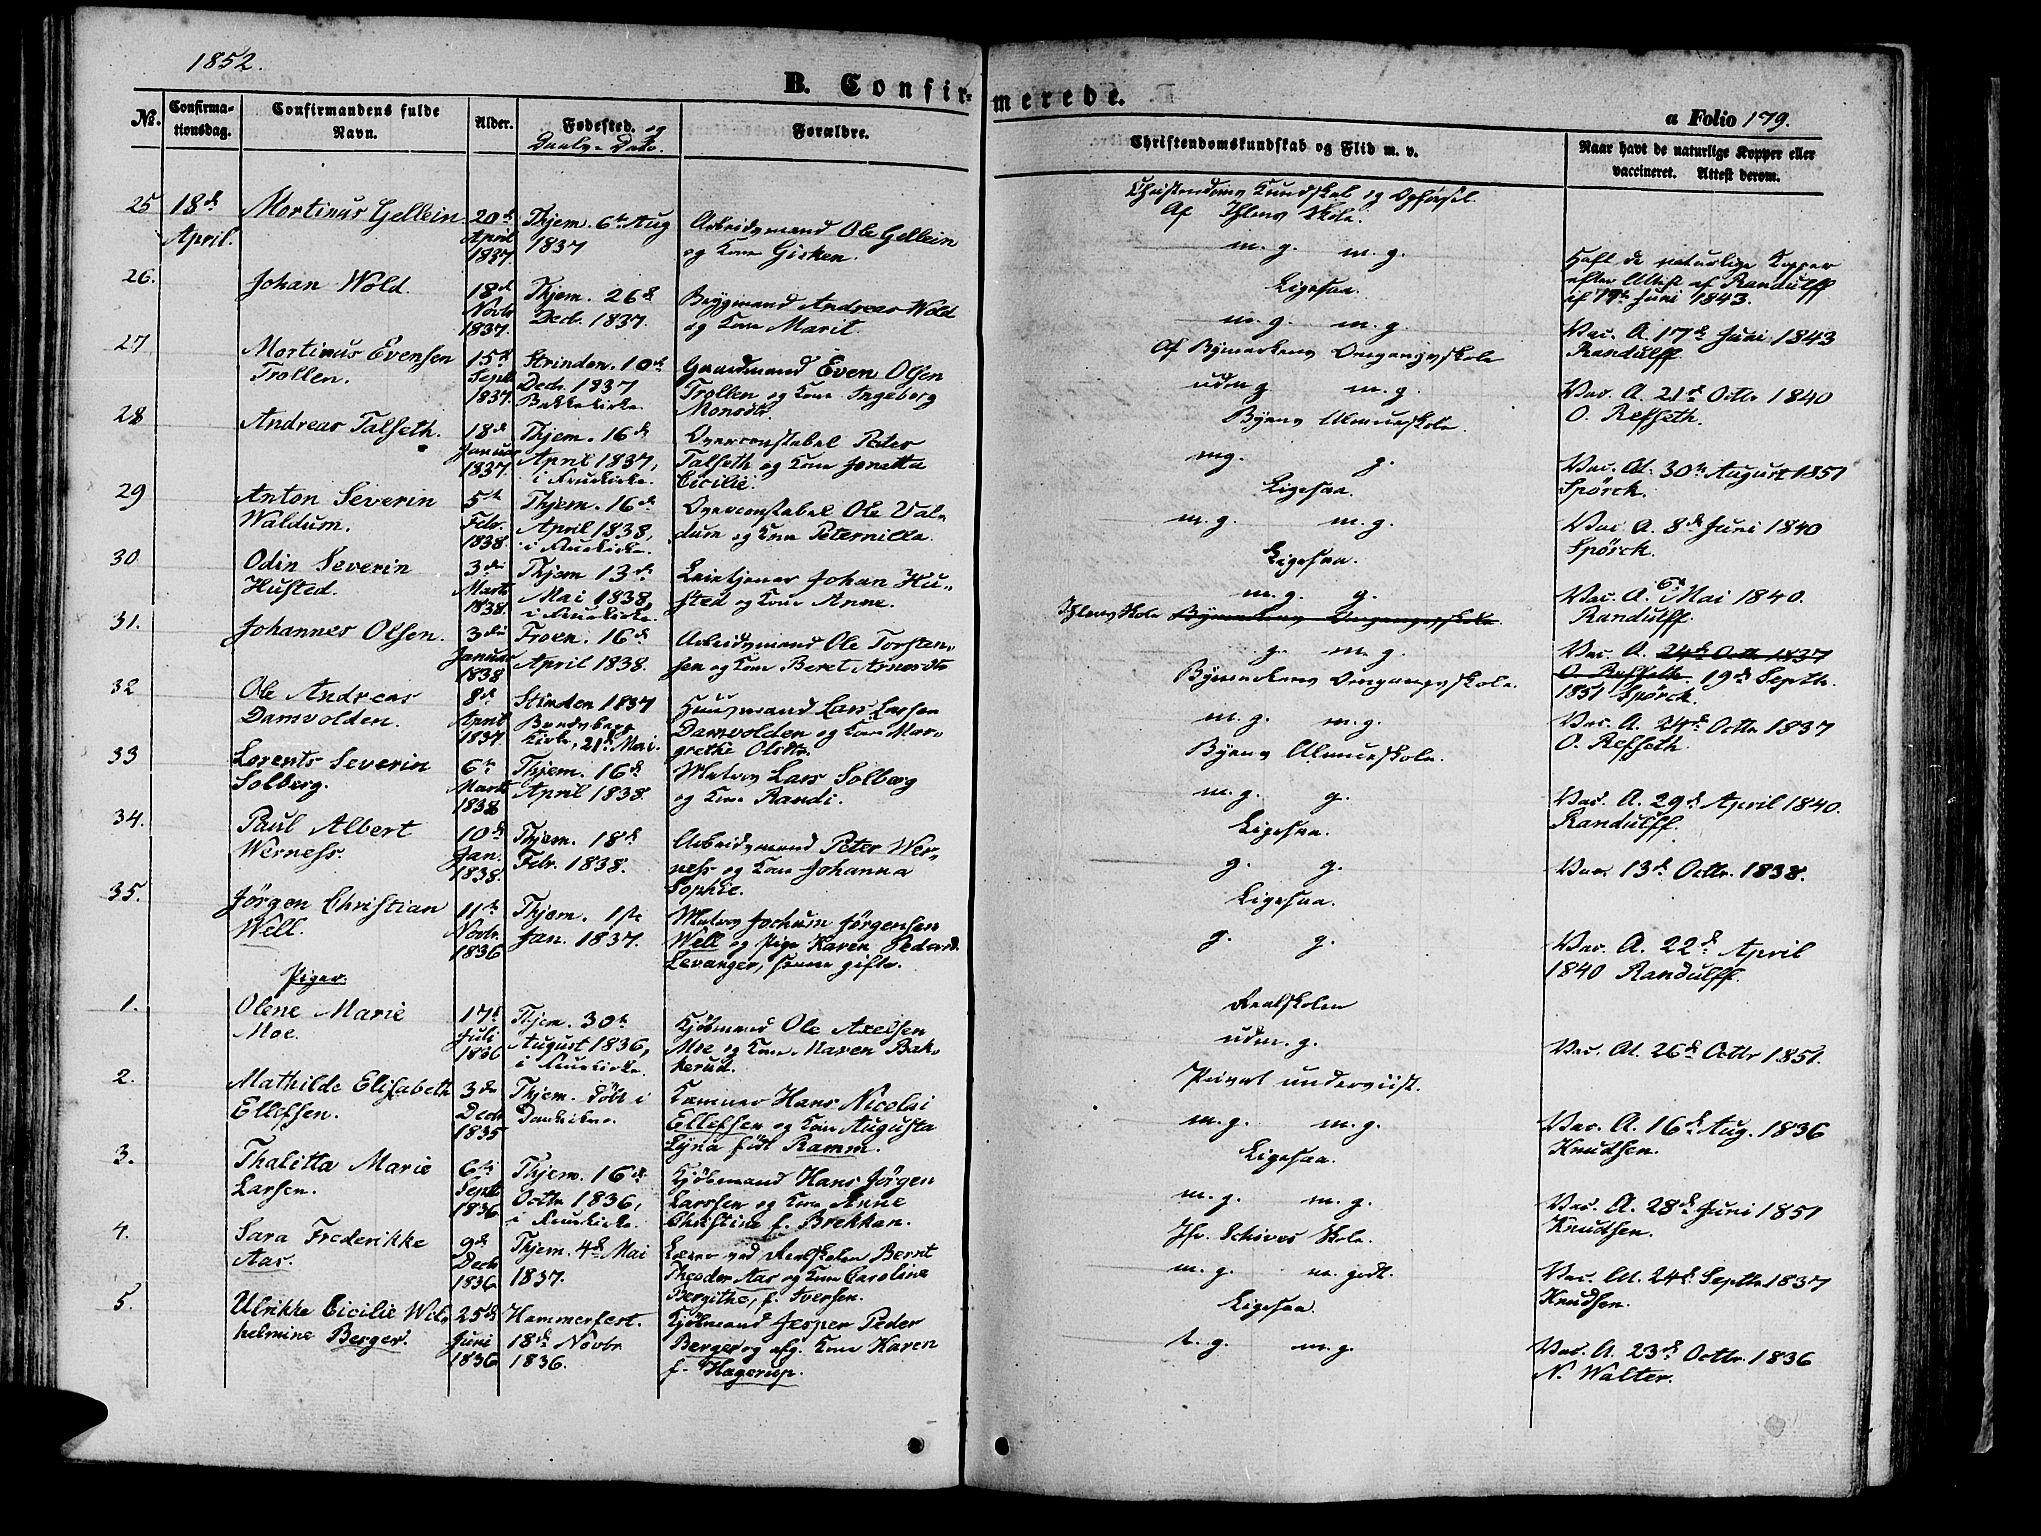 1852.
B. Confir=
merede.
a Folio 179.
No. Confirma-tionsdag. Confirmandens fulde Navn. Alder. Fødested. og Daabs-Dato. Forældre.
Christendomskundskab og Flid m. v. Naar havt de naturlige Kopper eller vaccineret. Attest derom.
Christendoms Kundskab og Opførsel.
Af Ihlens Skole.
25 18de April. Mortinus Gellein 20de April 1837. Thjem. 6te Aug 1837 Arbeidsmand Ole Gellein og Kone Gisken. m. g. m. g. Haft de naturlige Kopper efter Attest af Randulff af 17de Juni 1843.
Ligesaa.
26. Johan Wold. 18de Novbr 1837. Thjem. 26de Decb. 1837. Brygmand Andreas Wold og Kone Marit. m. g. m. g. Vac. A. 17de Juni 1843 Randulff.
Af Bymarkens Omgangsskole
27 Mortinus Evensen Trollen. 15de Septb 1837. Strinden. 10de Decbr. 1837 Bakkekirke. Gaardmand Even Olsen Trollen og Kone Ingeborg Monsdtr. udm g m. g. Vac. A. 21de Octbr 1840 O. Refseth.
Byens Almueskole.
28 Andreas Talseth. 18de Januar 1837. Thjem. 16de April 1837, i Fruekirke. Overconstabel Peter Talseth og Kone Jonetta Cicilie. mg. g. Vac. At. 30te August 1851 Spörck.
Ligesaa.
29 Anton Severin Waldum. 5te Febr. 1838. Thjem. 16de April 1838, i Fruekirke. Overconstabel Ole Valdum og Kone Peternilla. m. g. m. g. Vac. A. 8de Juni 1840 Spörck.
Ligesaa.
30 Odin Severin Husted. 3die Marts 1838. Thjem 13de Mai 1838, i Fruekirke. Leietjener Johan Husted og Kone Anne. m. g. g. Vac. A. 6te Mai 1840. Randulff.
Ihlens Skole Bymarkens Omgangsskole.
31. Johannes Olsen. 3die Januar 1838 Froen. 16de April 1838. Arbeidsmand Ole Torstensen og Kone Beret Arnesdtr g. m. g. Vac. A. 24de Octb 1837 O. Refseth. 19de Septbr. 1851 Spörck.
Bymarkens Omgangsskole.
32 Ole Andreas Damvolden. 8de April 1837. Strinden 1837 Kirke, 21de Mai. Huusmand Lars Larsen Damvolden og Kone Margrethe Olsdtr. m. g. m. g. Vac. A. 24de Octbr 1837 O. Refseth.
Byens Almueskole.
33 Lorents Severin Solberg. 6te Marts 1838 Thjem. 16de April 1838. Matros Lars Solberg og Kone Randi. m. g. g. Vac. A. 29de April 1840. Randulff.
Ligesaa.
34. Paul Albert Werness. 10de Jan. 1838. Thjem. 18de Febr. 1838. Arbeidsmand Peter Werness og Kone Johanna Sophie. g. g. Vac. 13de Octbr. 1838.
Ligesaa.
35. Jörgen Christian Well. 11te Novbr. 1836 Thjem. 1ste Jan. 1837. Matros Jochum Jörgensen Well og Pige Karen Pedersd. Levanger, senere gifte. g. g. Vac. A. 22de April 1840 Randulff.
Piger.
Realskolen
1. Olene Marie Moe. 17de Juli 1836 Thjem. 30te August 1836, i Fruekirke. Kjöbmand Ole Axelsen Moe og Kone Maren Bakkerud. udm. g. Vac. At. 26de Octbr 1851.
Privat underviist.
2. Mathilde Elisabeth Ellefsen. 3die Decbr 1835 Thjem. döbt i Domkirken. Hans Nicolai Ellefsen og Kone Augusta Lyna född Ramm. m. g. m. g. Vac. A. 16de Aug. 1836 Knudsen.
Ligesaa.
3. Thalitta Marie Larsen. 6te Septb 1836 Thjem. 16de Octbr 1836, i Fruekirke. Kjöbmand Hans Jörgen Larssen og Kone Anne Christine f. Brekkan. m. g. m. g. Vac. A. 28de Juni 1851 Knudsen.
Jfr. Schives Skole.
4. Sara Frederikke Aas. 9de Decbr 1836 Thjem. 4de Mai 1837. Lærer ved Realskolen Bernt Theodor Aas og Kone Caroline Bergithe, f. Iversen. m. g. m. godt. Vac. At. 24de Septbr 1837 Knudsen.
Ligesaa.
5. Ulrikke Cicilie Wilhelmine Berger. 25de Juni 1836 Hammerfest. 18de Novbr 1836. Kjöbmand Jesper Peder Berger og afg. Kone Karen f. Hagerup. t. g. m. g. Vac. A. 23de Octbr. 1836 N. Walter.